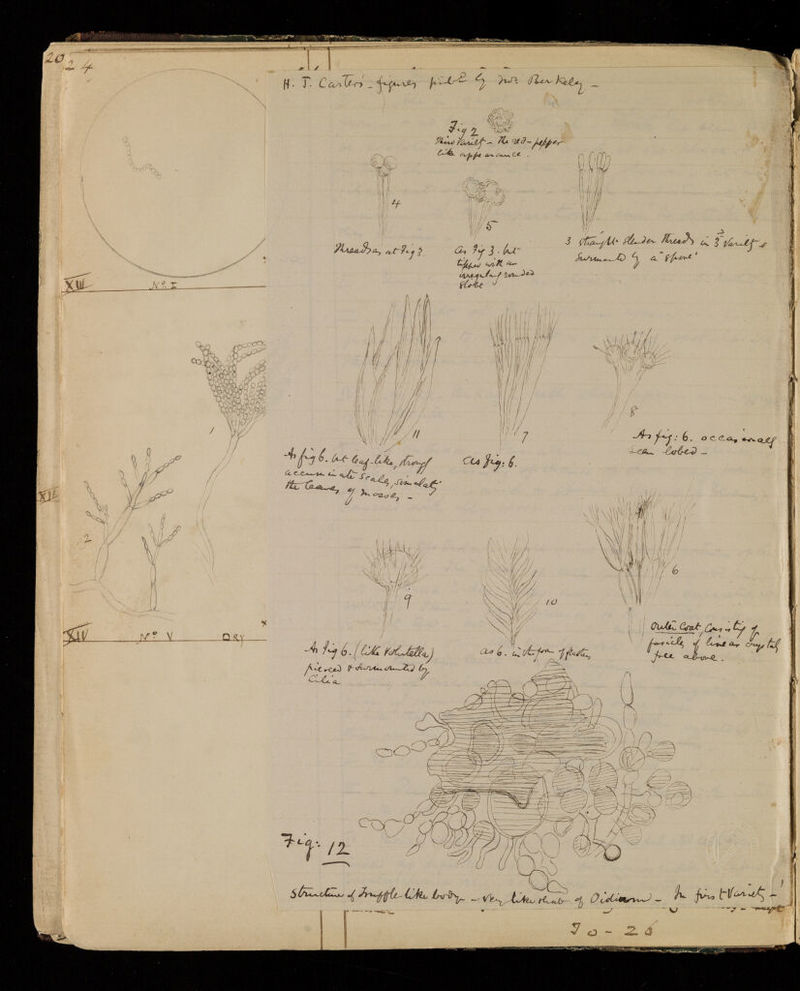 20
24
H. J. Carter's figures publd by Mr Berkeley -
Fig 2
Third Variety - The red-pepper
like appearance.
4
5
Threads as at Fig 3
As Fig 3. but
tipped with an
irregular rounded
globe
3 straight slender threads in 3d Variety
surmounted by a "spore"
XIII
No. I
11
7
8
As fig 6. but leaf-like, strong
accuminate scales, simulatg
the leaves of mosses, -
As fig: 6.
As fig: 6. occasionally
lobed -
1
XII
2
9
10
6
XIV
No V
DRY
As fig 6. (like Volutella)
pierced & surmounted by
Cilia
as 6. in the form of feather
Outer Coat Consistg of
fascicles of linear crystals
free above.
Fig: 12
Structure of Truffle-like body - very like that of Oidium - In first Variety -
To - 26